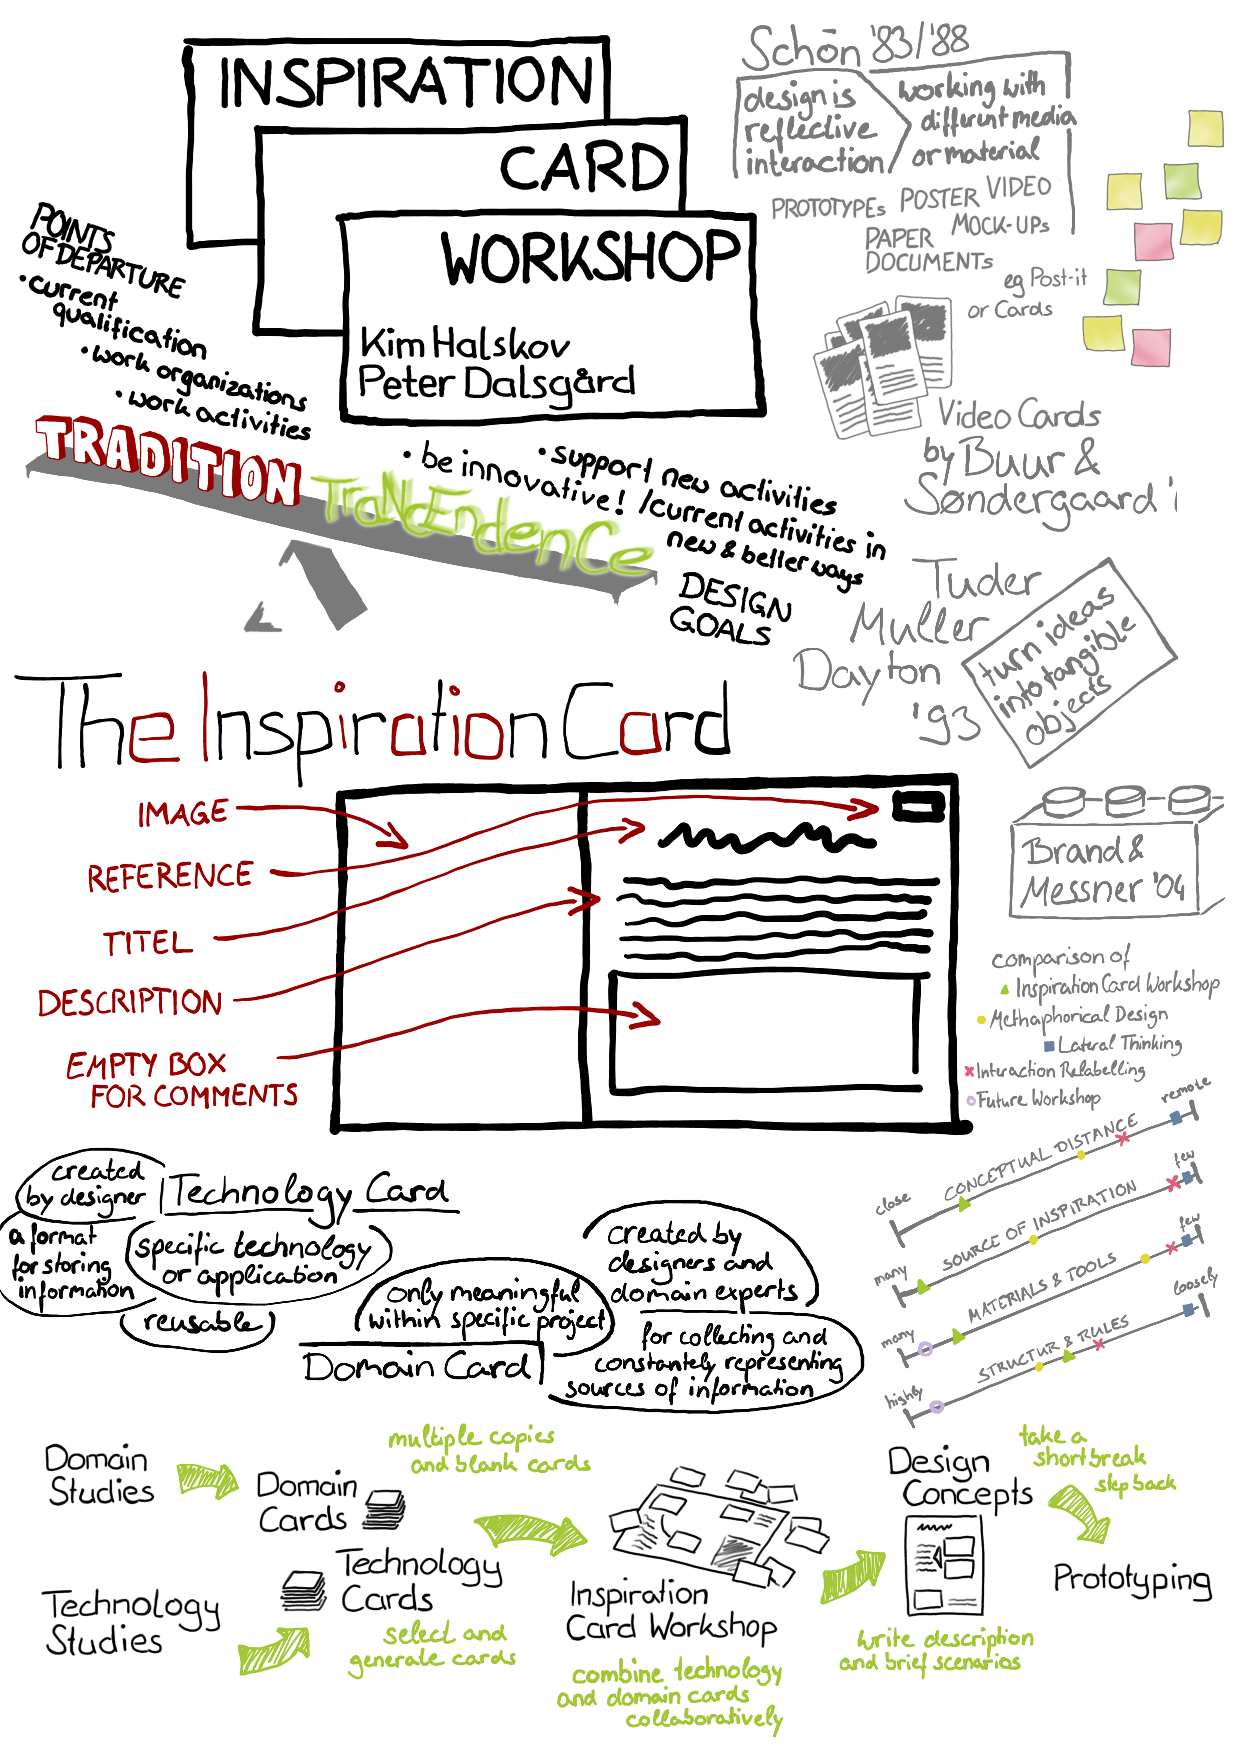 INSPIRATION
CARD
WORKSHOP
Kim Halskov
Peter Dalsgård
Schön '83/'88
design is
reflective
interaction
working with
different media
or material
PROTOTYPEs POSTER VIDEO
MOCK-UPs
PAPER
DOCUMENTs
eg Post-it
or Cards
Video Cards
by Buur &
Søndergaard '
POINTS
OF DEPARTURE
• current
qualification
• work organizations
• work activities
TRADITION
TraNcEndenCe
• support new activities
• be innovative! /current activities in
new & better ways
DESIGN
GOALS
Tuder
Muller
Dayton
'93
turn ideas
into tangible
objects
The Inspiration Card
IMAGE
REFERENCE
TITEL
DESCRIPTION
EMPTY BOX
FOR COMMENTS
Brand &
Messner '04
comparison of
Inspiration Card Workshop
Methaphorical Design
Lateral Thinking
Interaction Relabelling
Future Workshop
close CONCEPTUAL DISTANCE remote
many SOURCE OF INSPIRATION few
many MATERIALS & TOOLS few
highly STRUCTUR & RULES loosely
created
by designer
Technology Card
a format
for storing
information
specific technology
or application
reusable
only meaningful
within specific project
Domain Card
created by
designers and
domain experts
for collecting and
constantely representing
sources of information
Domain
Studies
Domain
Cards
multiple copies
and blank cards
Technology
Studies
Technology
Cards
select and
generate cards
Inspiration
Card Workshop
combine technology
and domain cards
collaboratively
Design
Concepts
write description
and brief scenarios
take a
short break
step back
Prototyping